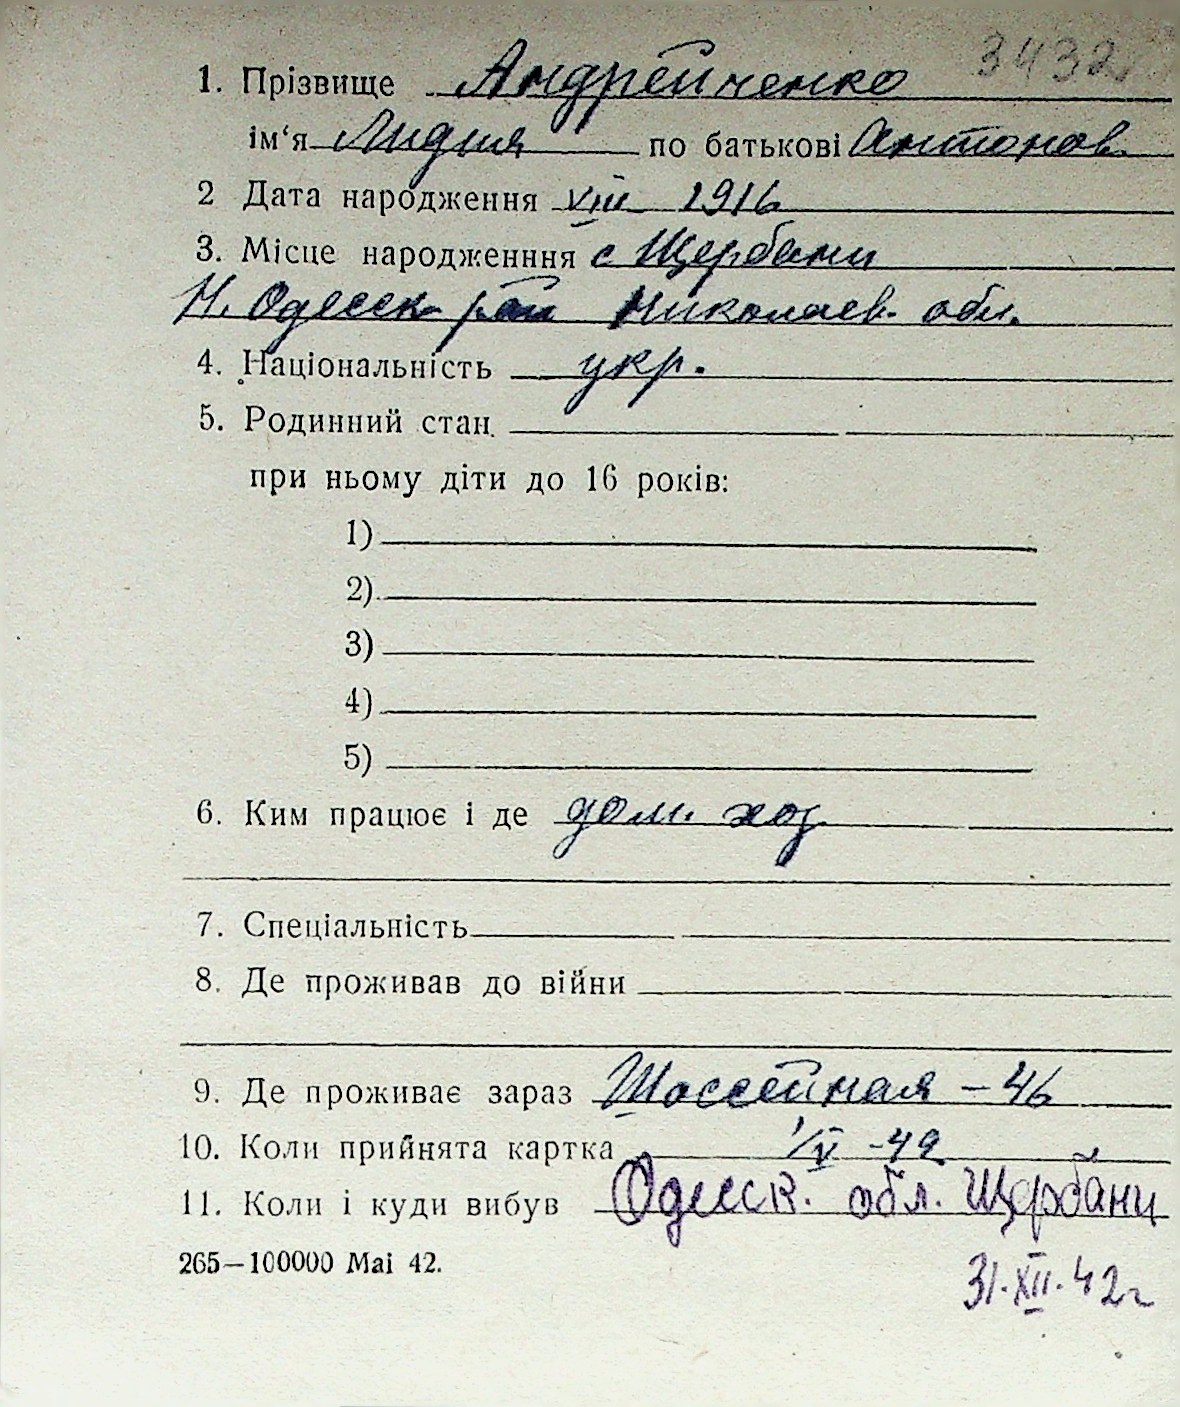 3432
1. Прізвище Андрейченко
ім‘я Лидия по батькові Антонов.
2 Дата народження VIII 1916
3. Місце народженння с Щербани
Н. Одесск. рай Николаев. обл.
4. Національність укр.
5. Родинний стан
при ньому діти до 16 років:
1)
2)
3)
4)
5)
6. Ким працює і де дом. хоз.
7. Спеціальність
8. Де проживав до війни
9. Де проживає зараз Шоссейная – 46
10. Коли прийнята картка 1/V -42
11. Коли і куди вибув Одесск. обл. Щербани
265—100000 Mai 42.
31.XII.42г